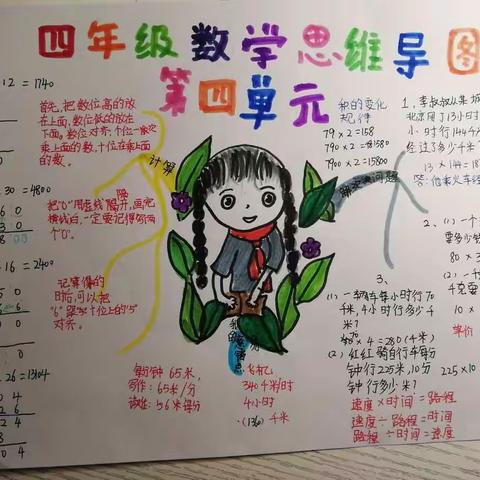 四年级数学思维导图
第四单元
12 = 1740
首先,把数位高的放
在上面,数位低的放在
下面。数位对齐,个位一乘次
乘上面的数,十位在乘上面
的数。
计算
30 = 4800
把"0"用虚线隔开,画完
横线后,一定要记得写两
个"0"。
16 = 2400
记算得的
时后,可以把
"6"跟"对十位上的"5"
对齐。
26 = 13104
积的变化
规律
79×2=158
790×2=1580
7900×2=15800
解决问题
1、李叔叔从某城
北京用了13小时
小时行144千
经过多少千米?
13×144=18
答:他乘火车经
2、(1)一个
要多少钱
80×3
(2)一
千克要
10×
单价
3、
(1)一辆汽车每小时行70
千米,4小时行多少千
米?
70×4=280(千米)
(2)红红骑自行车每分
钟行225米,10分
钟行多少米?
225×10
速度×时间=路程
速度÷路程=时间
路程÷时间=速度
每分钟65米,
写作:65米/分
读作:
340千米/时
4小时
(1360)千米